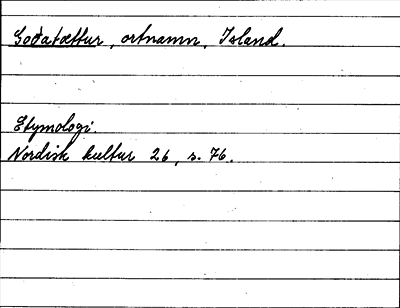 Goðatættur, ortnamn, Island.
Etymologi.
Nordisk kultur 26, s. 76.